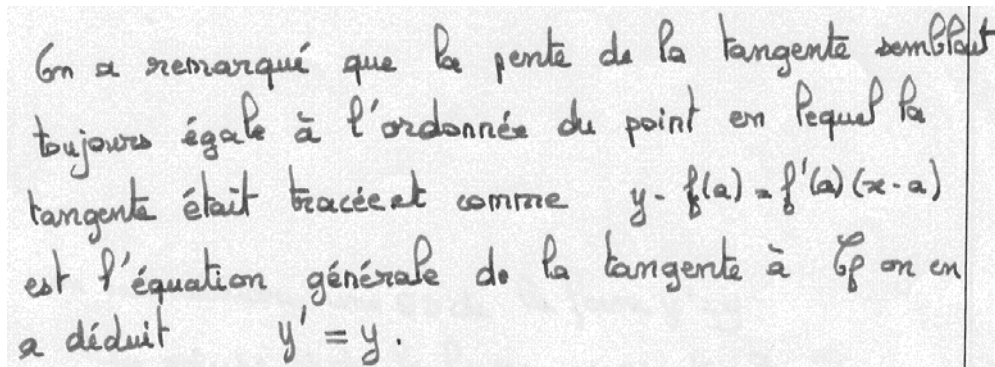 On a remarqué que la pente de la tangente semblait
toujours égale à l'ordonnée du point en lequel la
tangente était tracée et comme y - f(a) = f'(a) (x - a)
est l'équation générale de la tangente à Cf on en
a déduit y' = y.